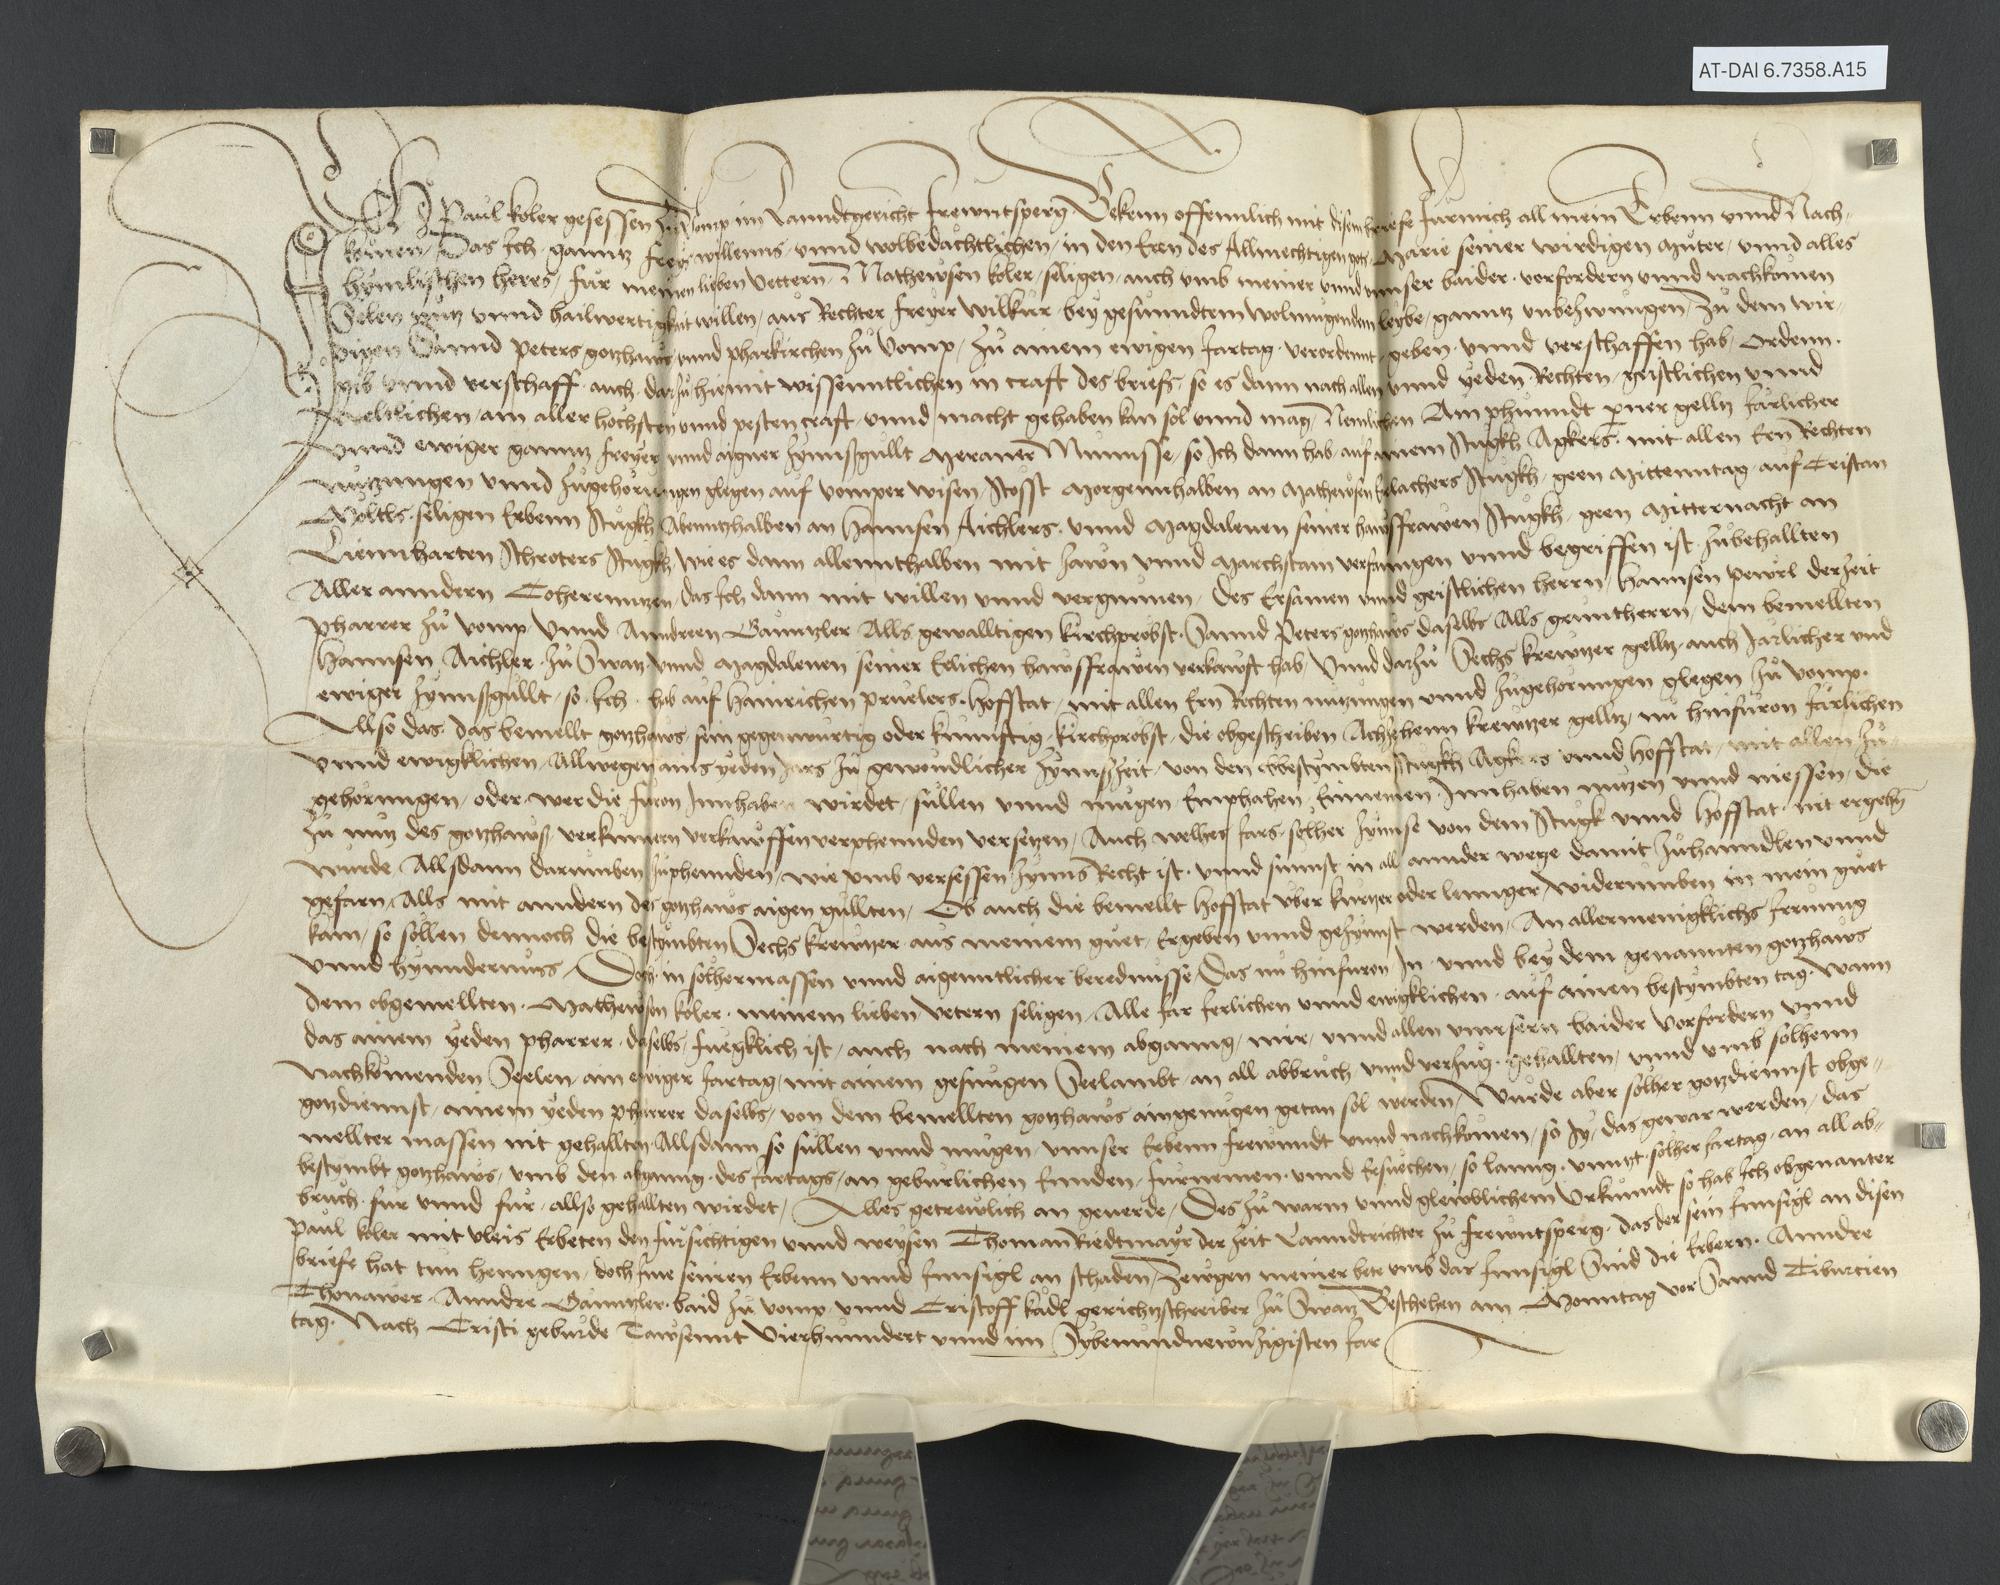 AT-DAI 6.7358.A15
Ich Paul koler gesessen zu Vomp im Lanndtgericht frewntsperg Bekenn offennlich mit disem briefe für mich all mein Erbenn vnnd Nach-
komen / Das Ich ganntz freys willenns vnnd wolbedachtlichen / in den Eren des Allmechtigen gots Marie seiner wirdigen muter / vnnd alles
hymlischen heres / für meinen lieben vettern / Mathewsen koler seligen / auch vmb meiner vnnd vnnser baider vorfordern vnnd nachkomen
Selen nutz vnnd hailwertigkait willen / aus Rechter freyer wilkur bey gesunndtem wolmugendem leybe / ganntz vnbezwungen / Zu dem wir-
digen Sannd Peters gotzhaws vnnd pharkirchen zu Vomp / zu ainem ewigen Jartag verordennt geben vnnd verschaffen hab / Ordenn
gib vnnd verschaff auch darzu hiemit wissenntlichen in craft des briefs / so es dann nach allen vnnd yeden Rechten / geistlichen vnnd
weltlichen / am aller hochsten vnnd pesten craft vnnd macht gehaben kan sol vnnd mag / Nemlichen Am phunndt perner gelltz Järlicher
vnnd ewiger ganntz freyer vnnd aigner zynnßgullt Meraner Munnsse / so Ich dann hab auf ainem Stugkh Agkers mit allen Ern Rechten
nutzungen vnnd zugehorungen glegen auf Vomper wisen / Stosst Morgennhalben an Mathewsen Erlachers Stugkh / geen Mittenntag auf Cristan
seligen Erbenn Stugkh Abenntzhalben an Hannsen Aichlers vnnd Magdalenen seiner hawsffrawen Stugkh / geen Mitternacht an
Liennharten Schroters Stugkh / wie es dann allennthalben mit zawn vnnd Marchstain verfanngen vnnd begriffen ist zubehallten
Aller anndern Coherenntzen / das Ich dann mit willen vnnd vergunnen / des Ersamen vnnd geistlichen herrn / Hannsen Pewrl derzeit
Pharrer zu Vomp / Vnnd Anndreen Gänntzler Alls gewalltigen kirchprobst Sannd Peters gotzhaws daselbs Alls gruntherrn / dem bemellten
Hannsen Aichler zu Swatz vnnd Magdalenen seiner Elichen hawsffrawen verkawft hab / Vnnd darzu Sechs krewtzer gelltz auch Järlicher vnd
ewiger zynnßgullt / so Ich hab auf Hainrichen Pruelers Hofstat / mit allen Ern Rechten nutzungen vnnd zugehorungen glegen zu Vomp
Allso das / das bemellt gotzhaws / sein gegenwurtig oder kunftig kirchprobst / die obgeschriben Achtzehenn krewtzer gelltz / nu hinfuron Järlichen
vnnd ewigklichen / Allwegen ains yeden Jars zu gewondlicher zynnßzeit / von den obbestymbten Stugkh Agkers vnnd Hofstat / mit allen zu-
gehorungen / oder wer die furon Innhaben wirdet / sullen vnnd mugen Emphahen Einnemen Innhaben nutzen vnnd niessen / die
zu nutz des gotzhawß verkumern verkawffen verphennden versetzen / Auch welhes Jars solher zynnse von dem Stugk vnnd Hofstat nit ergebn
wurde Allsdann darumben zuphennden / wie vmb versessen zynns Recht ist vnnd sunnst in all annder wege damit zuhanndlen vnnd
gefarn / Alls mit anndern des gotzhaws aigen gullten / Ob auch die bemellt Hofstat vber kurtzer oder lenger / widerumben in mein guet
kam / so sollen dennoch die bestymbten Sechs krewtzer aus meinem guet / Ergeben vnnd gezynnst werden / An allermenigklichs Irrung
vnnd hynndernuss / Doch in solhermassen vnnd aigenntlicher berednusse / Das nu hinfuron In vnnd bey dem genannten gotzhaws
dem obgemellten Mathewsen koler meinem lieben vetern seligen / Alle Jar Jerlichen vnnd ewigklichen auf ainen bestymbten tag / Wann
das ainem yeden pharrer daselbs / fuegklich ist / auch nach meinem abganng / mir / vnnd allen vnnsern baider Vorfordern vnnd
nachkomenden Seelen / ain ewiger Jartag / mit ainem gesungen Seelambt / an all abbruch vnnd verzug gehallten / vnnd vmb solhenn
gotzdiennst / ainem yeden pharrer daselbs / von dem bemellten gotzhaws aingenugen getan sol werden / Wurde aber solher gotzdiennst obge-
mellter massen nit gehallten Allsdann so sullen vnnd mugen / vnnser Erbenn frewnndt vnnd nachkomen / so Sy / das gewar werden / das
bestymbt gotzhaws / vmb den abganng des Jartags / an geburlichen Ennden / furnemen vnnd Ersuechen / so lanng vnntzt solher Jartag an all ab-
bruch / fur vnnd fur / allso gehallten wirdet / Alles getrewlich an geuerde / Des zu warm vnnd glewblichem Vrkunndt so hab Ich obgenanter
Paul koler mit vleis Erbeten den fursichtigen vnnd weysen Thoman Riedtmayr der zeit Lanndtrichter zu frewntsperg das der sein Innsigl an disen
briefe hat tun henngen / doch Ime seinen Erbenn vnnd Innsigl an schaden / Zewgen meiner bete vmb das Innsigl Sind die Erbern Anndre
Thonawer Anndre Gänntzler baid zu Vomp vnnd Cristoff kädl gerichtzschreiber zu Swatz Beschehen am Monntag vor Sannd Tiburcien
tag Nach Cristi geburde Tawsennt Vierhunndert vnnd im Sybenundnewnzigisten Jar